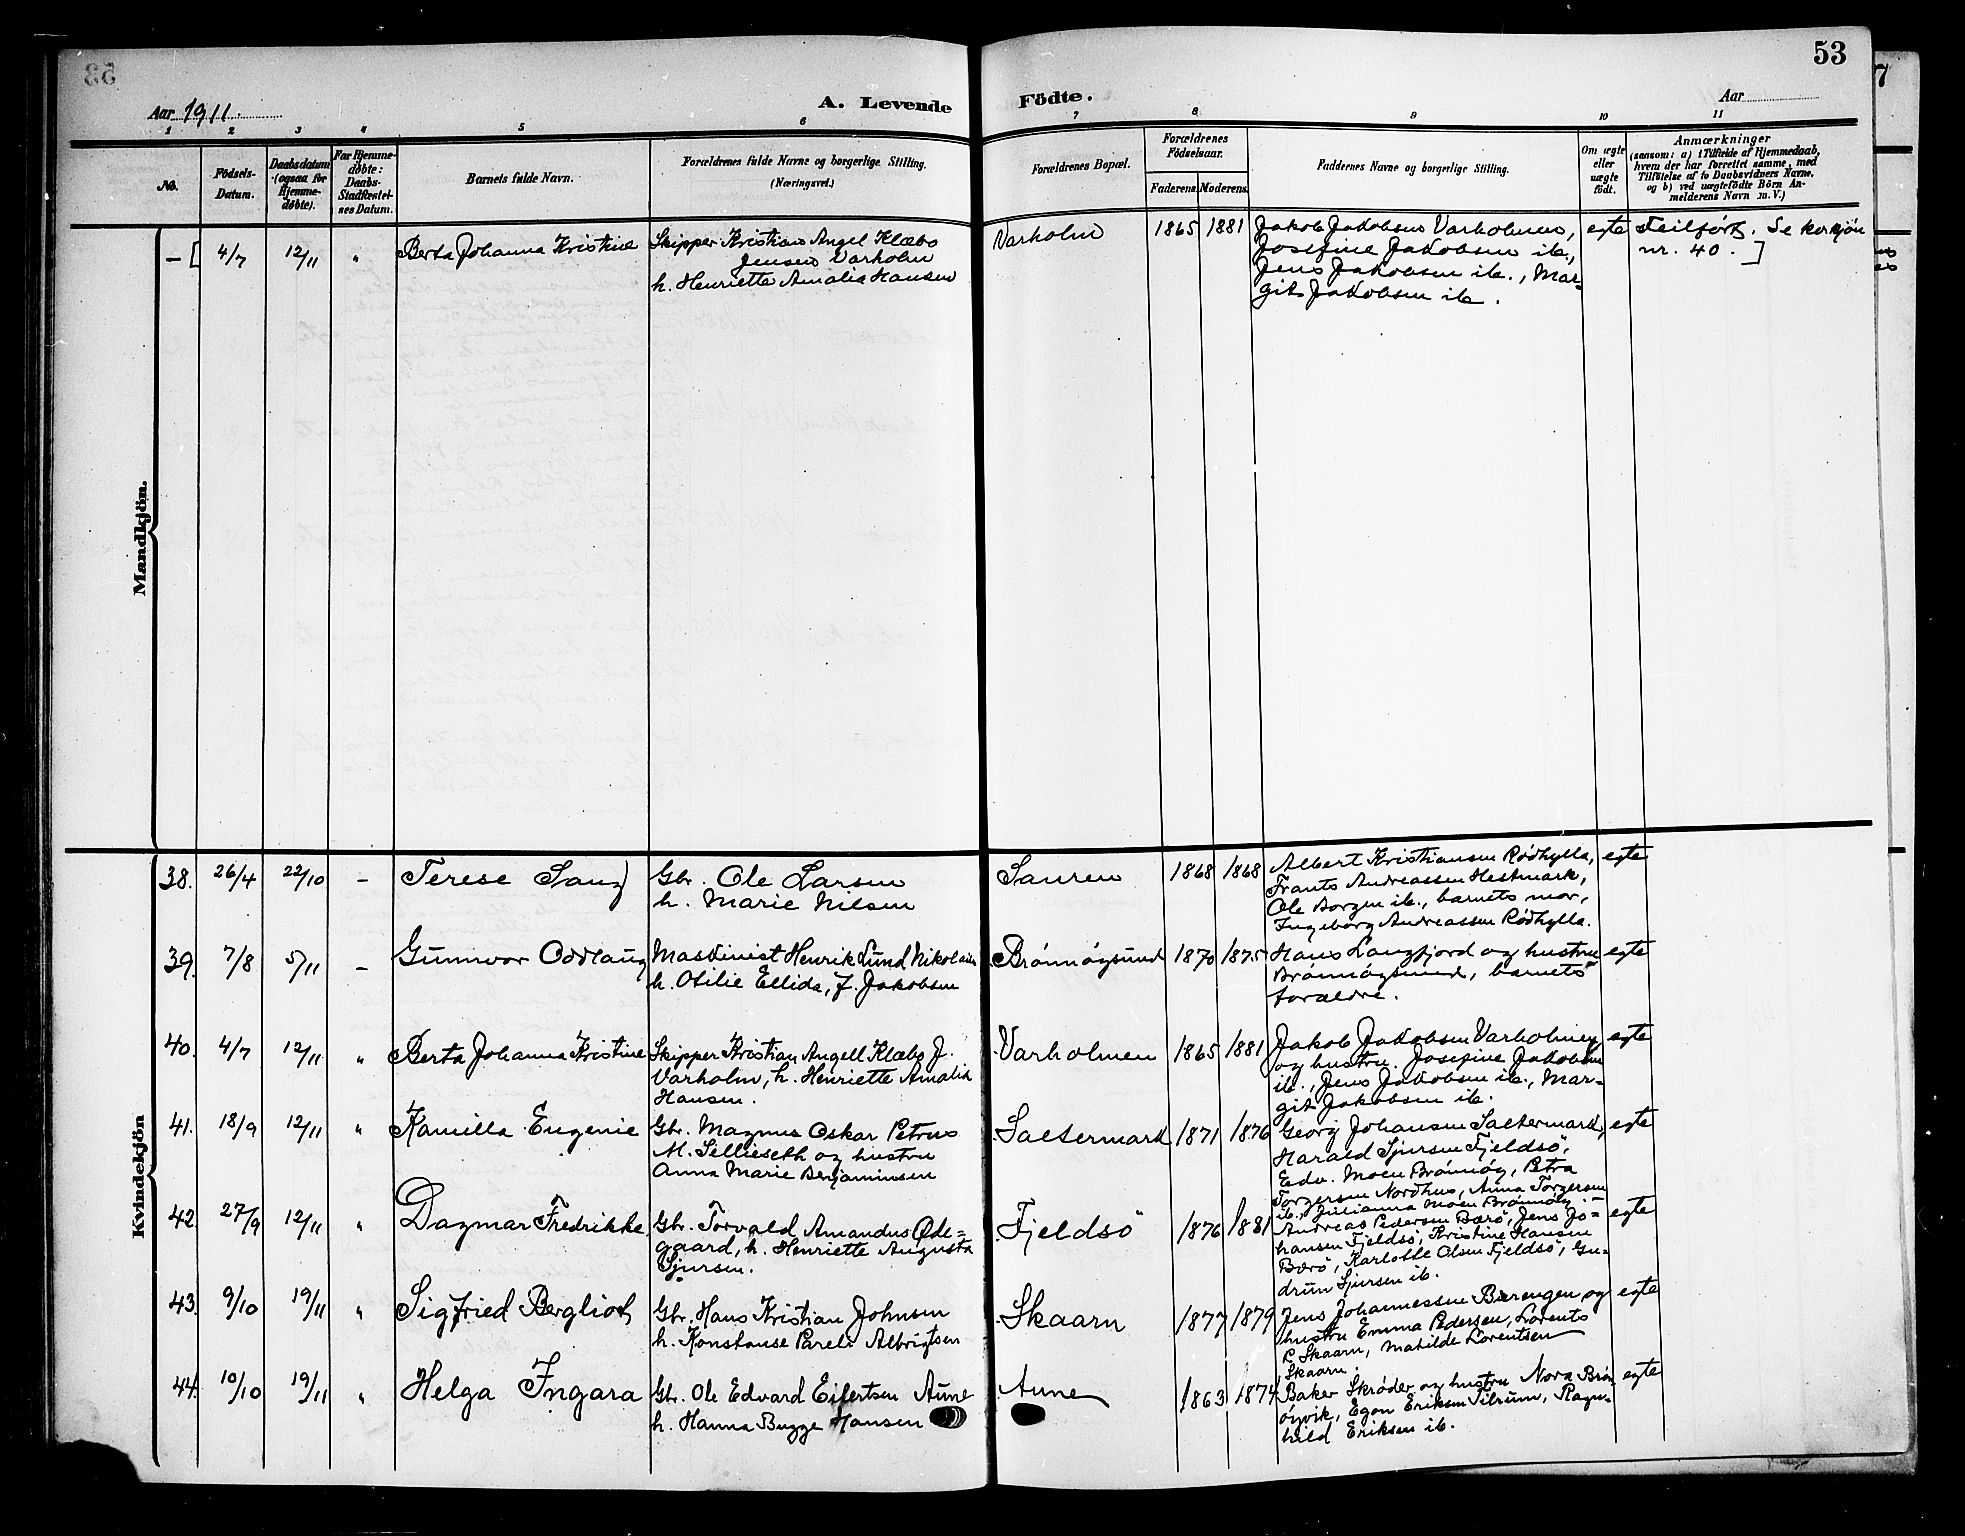 53
Aar 1911.
A. Levende Födte.
Aar
1 2 3 4 5 6 7 8 9 10 11
No.
Födsels-
Datum.
Daabsdatum
(ogsaa for
Hjemme-
døbte).
For Hjemme-
døbte:
Daabs-
Stadfæstel-
ses Datum.
Barnets fulde Navn.
Forældrenes fulde Navne og borgerlige Stilling.
(Næringsvei.)
Forældrenes Bopæl.
Forældrenes
Födselsaar.
Faderens. Moderens.
Faddernes Navne og borgerlige Stilling.
Om ægte
eller
uægte
födt.
Anmærkninger
(saasom: a) i Tilfælde af Hjemmedaab,
hvem der har forrettet samme, med
Tilföielse af to Daabsvidners Navne,
og b) ved uægtefödte Börn An-
melderens Navn m. V.)
Mandkjön.
– [ 4/7 12/11 " Berta Johanna Kristine
Skipper Kristian Angel Klæbo
Jensen Varholm
h. Henriette Amalia Hansen
Varholm 1865 1881
Jakob Jakobsen Varholmen,
Josefine Jakobsen ib.,
Jens Jakobsen ib., Mar-
git Jakobsen ib.
egte
Feilført. Se kvkjøn
nr. 40. ]
Kvindekjön
38. 26/4 22/10 – Terese Sang
Gbr. Ole Larsen
h. Marie Nilsen
Sauren 1868 1868
Albert Kristiansen Rødhylla,
Frants Andreassen Hestmark,
Ole Borgen ib., barnets mor,
Ingeborg Andreassen Rødhylla.
egte
39. 7/8 5/11 – Gunnvor Oddlaug
Maskinist Henrik Lund Nikolaisen
h. Otilie Ellida, f. Jakobsen
Brønnøysund 1870 1875
Hans Langfjord og hustru
Brønnøysund, barnets
forældre.
egte
40. 4/7 12/11 " Berta Johanna Kristine
Skipper Kristian Angell Klæbo J.
Varholm, h. Henriette Amalia
Hansen.
Varholmen 1865 1881
Jakob Jakobsen Varholmen
og hustru Josefine Jakobsen
ib., Jens Jakobsen ib., Mar-
git Jakobsen ib.
egte
41. 18/9 12/11 " Kamilla Eugenie
Gbr. Magnus Oskar Petrus
M. Sellieseth og hustru
Anna Marie Benjaminsen
Saltermark 1871 1876
Georg Johansen Saltermark,
Harald Sjursen Fjeldsö,
Edv. Moen Brønnøy, Petra
Torgersen Nordhus, Anna Torgersen
ib., Julianna Moen Brønnøy.
egte
42. 27/9 12/11 " Dagmar Fredrikke
Gbr. Torvald Amandus Øde-
gaard, h. Henriette Augusta
Sjursen.
Fjeldsö 1876 1881
Andreas Pedersen Bærö, Jens Jo-
hansen Fjeldsö, Kristine Hansen
Bærö, Karlotte Olsen Fjeldsö, Gu-
drun Sjursen ib.
egte
43. 9/10 19/11 " Sigfried Bergliot
Gbr. Hans Kristian Johnsen
h. Konstanse Pareli Albrigtsen
Skaarn 1877 1879
Jens Johannessen Bærengen og
hustru Emma Pedersen, Lorents
L Skaarn, Mathilde Lorentsen
Skaarn.
egte
44. 10/10 19/11 " Helga Ingara
Gbr. Ole Edvard Eilertsen Aune
h. Hanna Bugge Hansen
Aune 1863 1874
Baker Skrøder og hustru Nora Brøn-
øyvik, Egon Eriksen Tilrum, Ragn-
hild Eriksen ib.
egte